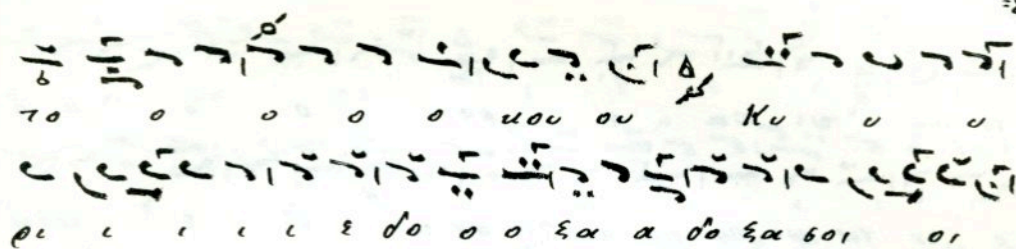 το ο ο ο ο μου ου Κυ υ υ
ρι ι ι ι ι ε δο ο ο ξα α δο ξα σοι οι